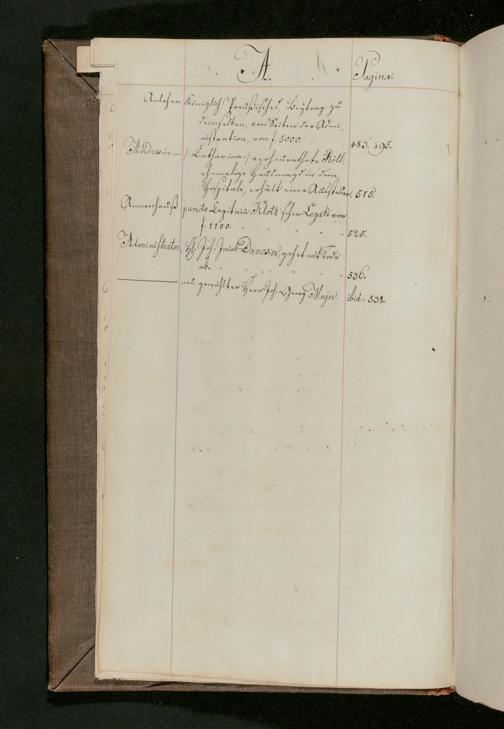 A.
Pagina.
Anlehen Königlich Preußisches, Beytrag zu
demselben, von Seiten der Admi-
nistration, von f. 5000. 485. 495.
Andrewin — /: Catharina :/ verheurathete Röll
ehemalige Hausmagd in dem
Hospitale, erhält eine Aussteuer. 515.
Armenhauß puncto Capitain Klotz'schen Legati von
f. 1100. 525.
Administrator, H. Joh. Jacob Dancker, gehet mit Tode
ab. 536.
neu gewählter Herr Joh. Georg Meyer. ibid. 538.